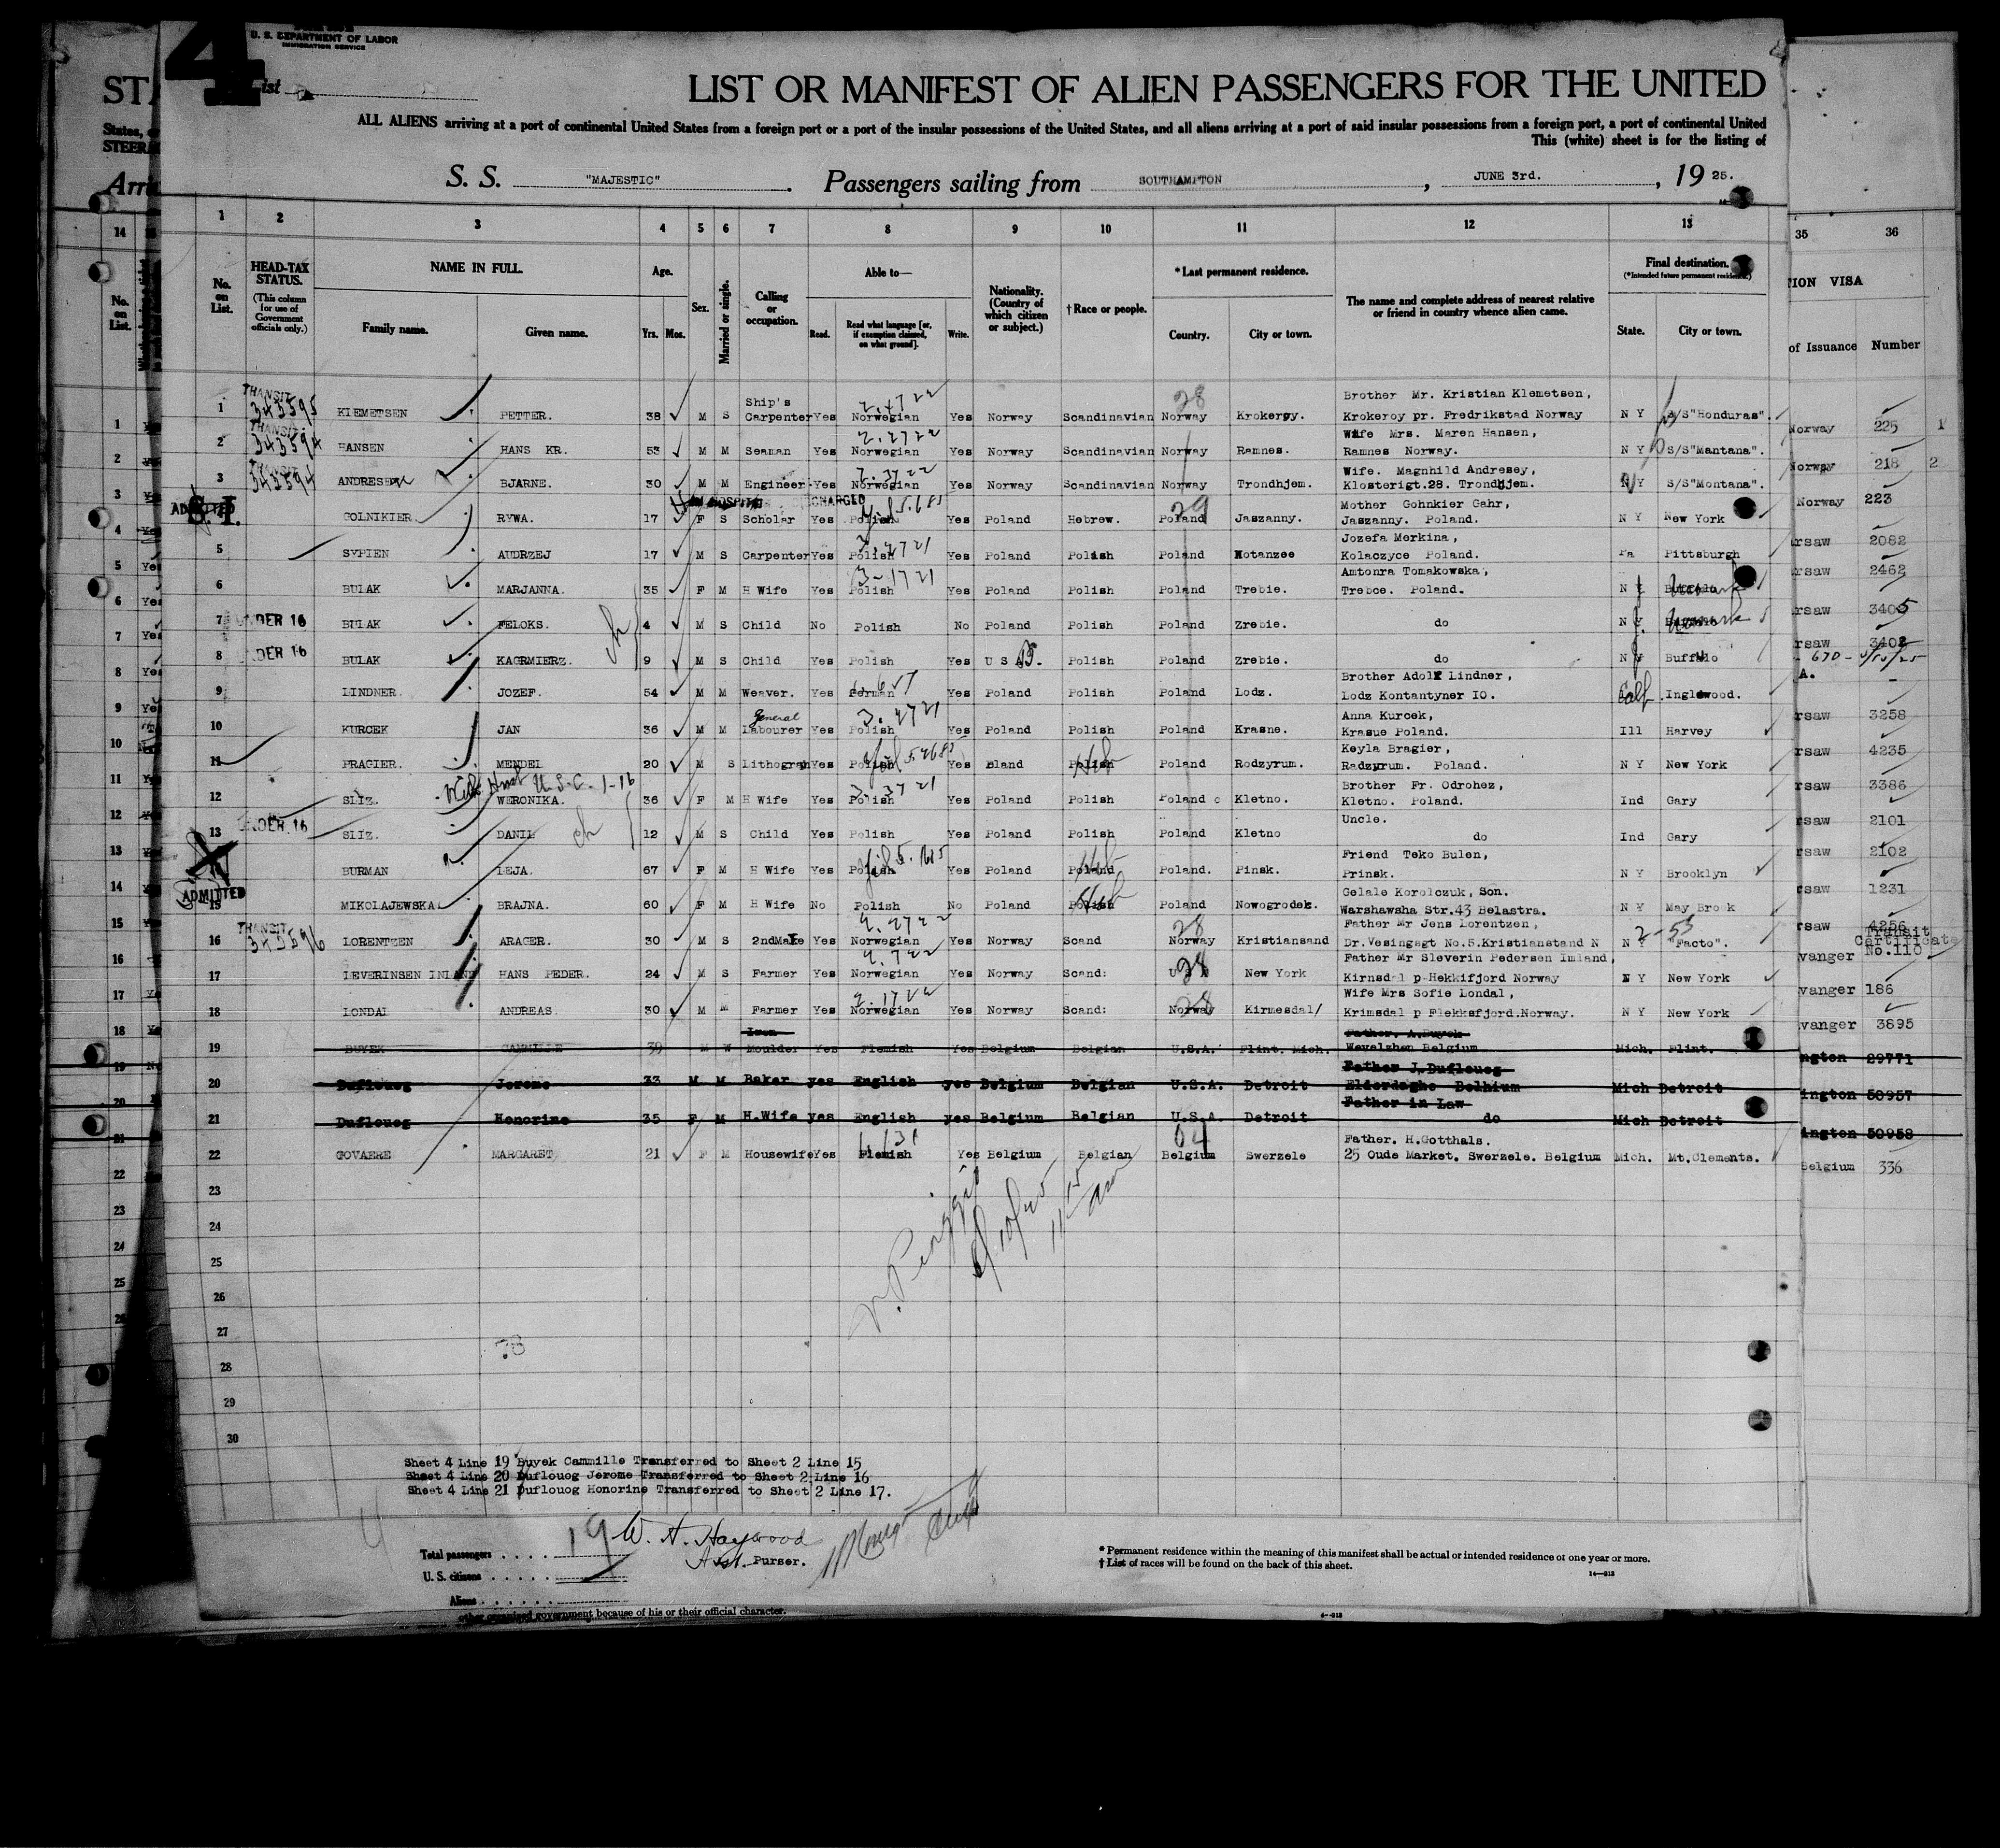 4
U. S. DEPARTMENT OF LABOR
IMMIGRATION SERVICE
List
LIST OR MANIFEST OF ALIEN PASSENGERS FOR THE UNITED
ALL ALIENS arriving at a port of continental United States from a foreign port or a port of the insular possessions of the United States, and all aliens arriving at a port of said insular possessions from a foreign port, a port of continental United
This (white) sheet is for the listing of
S. S. "MAJESTIC". Passengers sailing from SOUTHAMPTON, JUNE 3rd., 19 25.
1 2 3 4 5 6 7 8 9 10 11 12 13
No. on List. HEAD-TAX STATUS. (This column for use of Government officials only.) NAME IN FULL. Family name. Given name. Age. Yrs. Mos. Sex. Married or single. Calling or occupation. Able to— Read. Read what language [or, if exemption claimed, on what ground]. Write. Nationality. (Country of which citizen or subject.) † Race or people. * Last permanent residence. Country. City or town. The name and complete address of nearest relative or friend in country whence alien came. Final destination. (*Intended future permanent residence.) State. City or town.
35 36
ION VISA
of Issuance Number
1 TRANSIT 343595 KIEMETSEN PETTER. 38 M S Ship's Carpenter Yes Norwegian Yes Norway Scandinavian Norway Krokeroy. Brother Mr. Kristian Klemetsen, Krokeroy pr. Fredrikstad Norway N Y S/S"Honduras". Norway 225
2 TRANSIT 343594 HANSEN HANS KR. 53 M M Seaman Yes Norwegian Yes Norway Scandinavian Norway Ramnes. Wife Mrs. Maren Hansen, Ramnes Norway. N Y S/S"Mantana". Norway 218
3 TRANSIT 343594 ANDRESEN BJARNE. 30 M M Engineer Yes Norwegian Yes Norway Scandinavian Norway Trondhjem. Wife. Magnhild Andresey, Klosterigt.28. Trondhjem. N Y S/S"Montana". Norway 223
ADMITTED S.I. GOLNIKIER. RYWA. 17 F S Scholar Yes Polish Yes Poland Hebrew. Poland Jaszanny. Mother Gohnkier Gahr, Jaszanny. Poland. N Y New York rsaw 2082
5 SYPIEN AUDRZEJ 17 M S Carpenter Yes Polish Yes Poland Polish Poland Wotanzee Jozefa Merkina, Kolaczyce Poland. Pa Pittsburgh rsaw 2462
6 BULAK MARJANNA. 35 F M H Wife Yes Polish Yes Poland Polish Poland Trebie. Amtonra Tomakowska, Trebce. Poland. N Y Buffalo rsaw 3405
7 UNDER 16 BULAK FELOKS. 4 M S Child No Polish No Poland Polish Poland Zrebie. do N Y rsaw 3402
8 UNDER 16 BULAK KAGRMIERZ. 9 M S Child Yes Polish Yes U S Polish Poland Zrebie. do N Y Buffalo
9 LINDNER. JOZEF. 54 M M Weaver. Yes German Yes Poland Polish Poland Lodz. Brother Adolf Lindner, Lodz Kontantyner IO. Calif. Inglewood. rsaw 3258
10 KURCEK JAN 36 M M General Labourer Yes Polish Yes Poland Polish Poland Krasne. Anna Kurcek, Krasue Poland. Ill Harvey rsaw 4235
11 FRAGIER. MENDEL 20 M S Lithograph Yes Polish Yes Pland Polish Heb Poland Rodzyrum. Keyla Bragier, Radzyrum. Poland. N Y New York rsaw 3386
12 SLIZ. WERONIKA. 36 F M H Wife Yes Polish Yes Poland Polish Poland Kletno. Brother Fr. Odrohez, Kletno. Poland. Ind Gary rsaw 2101
13 UNDER 16 SLIZ. DANIL 12 M S Child Yes Polish Yes Poland Polish Poland Kletno Uncle. do Ind Gary rsaw 2102
BURMAN LEJA. 67 F M H Wife Yes Polish Yes Poland Poland Heb Poland. Pinsk. Friend Teko Bulen, Prinsk. N Y Brooklyn rsaw 1231
ADMITTED 15 MIKOLAJEWSKA BRAJNA. 60 F M H Wife No Polish No Poland Polish Heb Poland Nowogrodek. Gelale Korolczuk, Son. Warshawsha Str.43 Belastra. N Y May Brook rsaw 4256
16 TRANSIT 343596 LORENTZEN ARAGER. 30 M S 2ndMate Yes Norwegian Yes Norway Scand Norway Kristiansand Father Mr Jens Lorentzen, Dr.Vesingsgt No.5.Kristianstand N N Y "Facto". vanger Transit Certificate No.110
17 LEVERINSEN IMLAND HANS PEDER. 24 M S Farmer Yes Norwegian Yes Norway Scand: New York Father Mr Sleverin Pedersen Imland, Kirnsdal p Hekkifjord Norway N Y New York vanger 186
18 LONDAL ANDREAS. 30 M M Farmer Yes Norwegian Yes Norway Scand: Norway Kirmesdal/ Wife Mrs Sofie Londal, Krimsdal p Flekksfjord.Norway. N Y New York vanger 3895
19 BUYEK CAMMILLE 39 M W Iron Moulder Yes Flemish Yes Belgium Belgian U.S.A. Flint. Mich. Father. A.Buyek Wevelzhen Belgium Mich. Flint. ngton 29771
20 Duflouog Jerome 33 M M Baker yes English yes Belgium Belgian U.S.A. Detroit Father J.Duflouog Elderdeghe Belhium Mich Detroit ington 50957
21 Duflouog Honorine 35 F M H.Wife yes English yes Belgium Belgian U.S.A Detroit Father in Law do Mich Detroit ington 50958
22 GOVAERE MARGARET 21 F M Housewife Yes Flemish Yes Belgium Belgian Belgium Swerzele Father. H.Gotthals. 25 Oude Market. Swerzele. Belgium Mich. Mt.Clements. Belgium 336
23
24
25
26
27
28
29
30
78
Sheet 4 Line 19 Buyek Cammille Transferred to Sheet 2 Line 15
Sheet 4 Line 20 Duflouog Jerome Transferred to Sheet 2 Line 16
Sheet 4 Line 21 Duflouog Honorine Transferred to Sheet 2 Line 17.
Total passengers . . . . 19 W. H. Haywood
Asst. Purser.
U. S. citizens . . . . .
Aliens . . . . . .
* Permanent residence within the meaning of this manifest shall be actual or intended residence of one year or more.
† List of races will be found on the back of this sheet.
14—313
other organized government because of his or their official character.